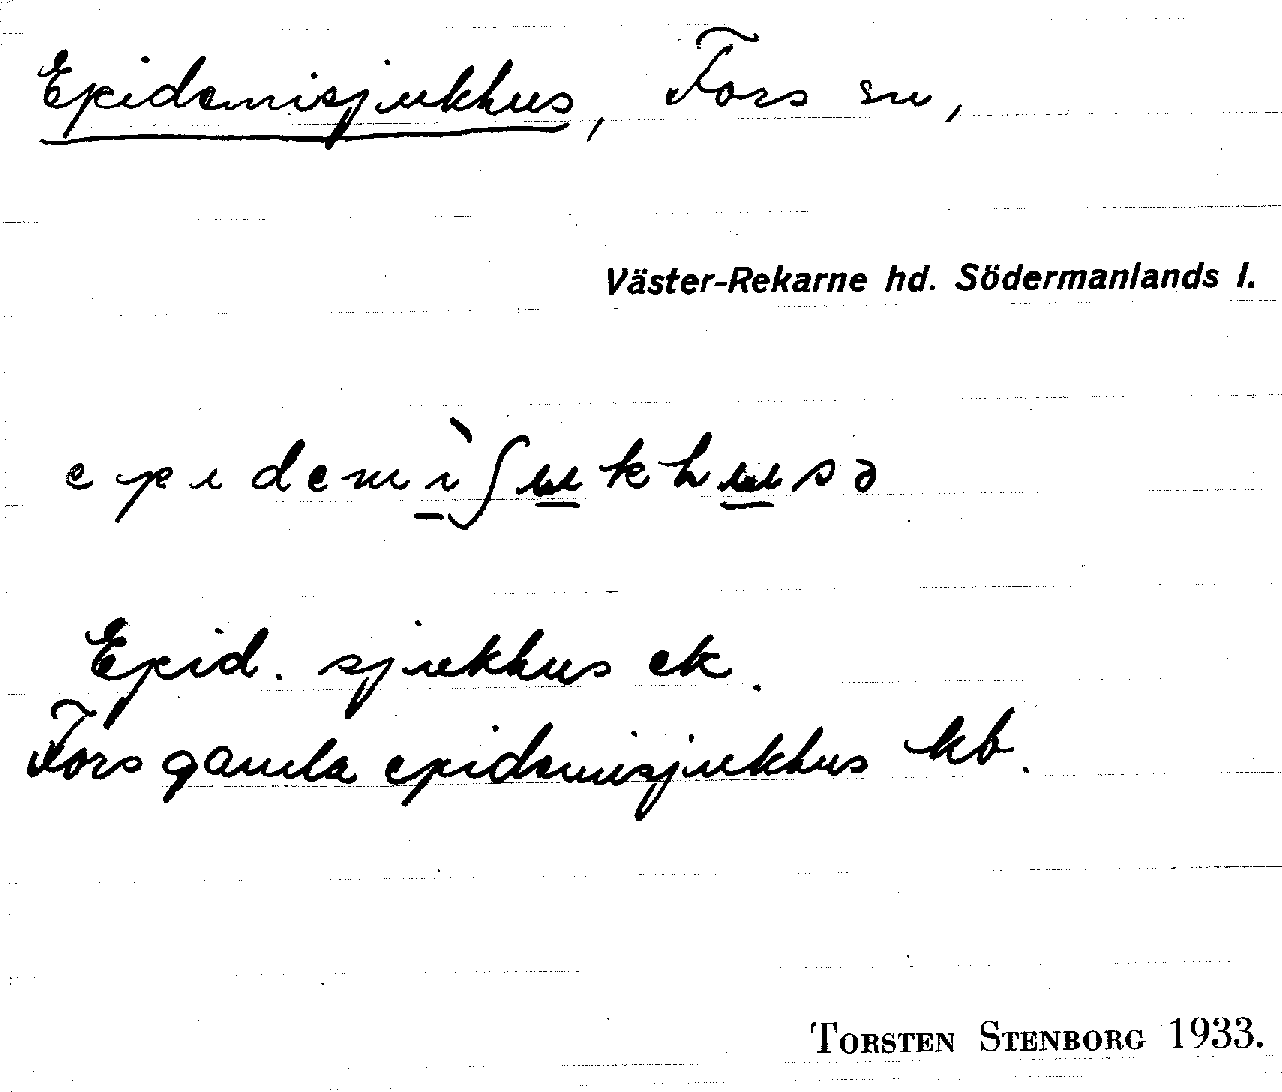 Epidemisjukhus, Fors sn,
Väster-Rekarne hd. Södermanlands l.
epidemìʃukhusə
Epid. sjukhus ek.
Fors gamla epidemisjukhus kb.
TORSTEN STENBORG 1933.